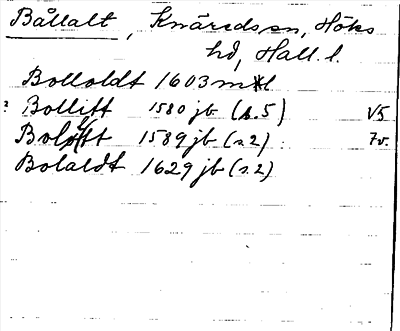 Bållalt, Knäreds sn, Höks
hd, Hall. l.
Bolloldt 1603 mtl
? Bollitt 1580 jb (s.5) V5
Bollt 1589 jb (s.2) : 7v.
Bolaldt 1629 jb (s.2)